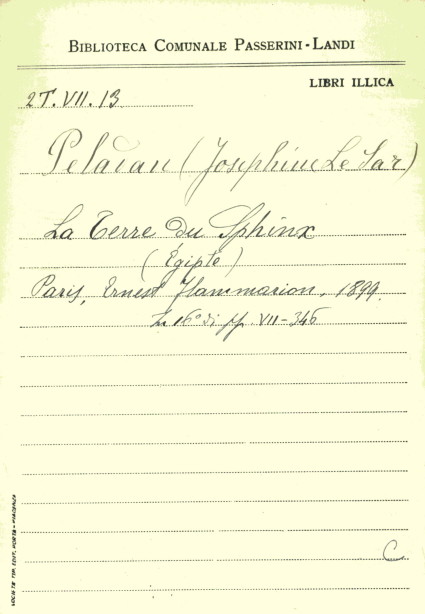 BIBLIOTECA COMUNALE PASSERINI-LANDI
LIBRI ILLICA
2T.VII.13
Peladan (Josephine Le Sar)
La Terre du Sphinx
(Égipte)
Paris, Ernest Flammarion, 1899.
In 16° di pp. VII-346
C